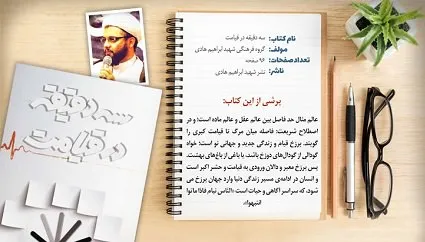 نام کتاب: سه دقیقه در قیامت
مولف: گروه فرهنگی شهید ابراهیم هادی
تعداد صفحات: ۹۶ صفحه
ناشر: نشر شهید ابراهیم هادی
برشی از این کتاب:
عالم مثال حد فاصل بین عالم عقل و عالم ماده است؛ و در
اصطلاح شریعت؛ فاصله میان مرگ تا قیامت کبری را
گویند. برزخ قیام و زندگی جدید و جهانی نو است؛ خواه
گودالی از گودال‌های دوزخ باشد، یا باغی از باغ‌های بهشت.
پس برزخ معبر و دالان ورودی به قیامت و حشر اکبر است
و انسان در ادامه‌ی مسیر زندگی دنیا وارد جهان برزخ می
شود، که سراسر آگاهی و حیات است «الناس نیام فاذا ماتوا
انتبهوا».
سه دقیقه
در قیامت